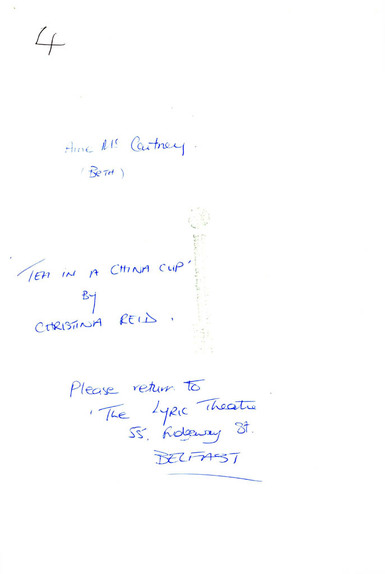 4
Aine Mc Cartney.
(BETH)
'TEA IN A CHINA CUP'
By
CHRISTINA REID.
Please return to
'The Lyric Theatre
55, Ridgeway St.
BELFAST